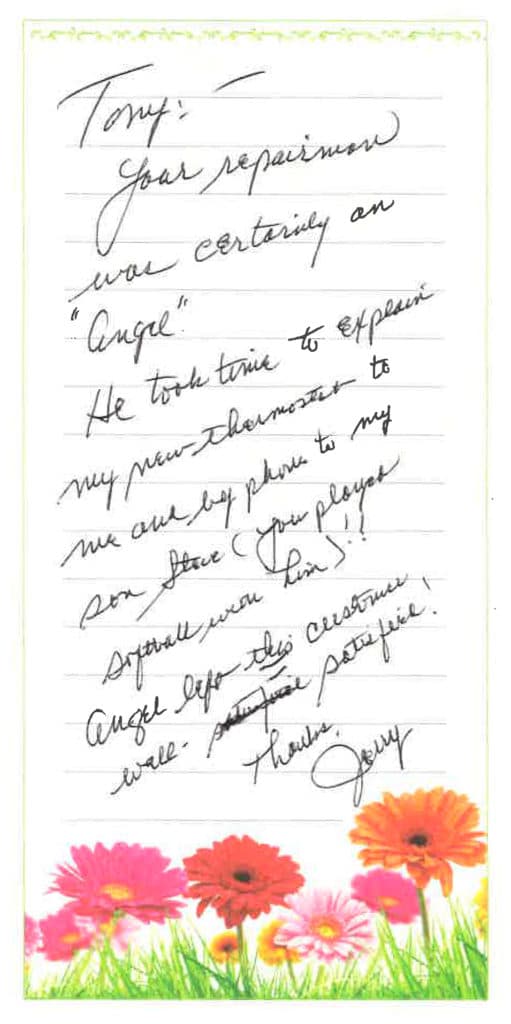 Tony: —
Your repairman
was certainly an
"Angel"
He took time to explain
my new thermostat to
me and by phone to my
son Steve (you played
softball with him)!!
Angel left this customer
well- satisfied!
Thanks,
Jerry